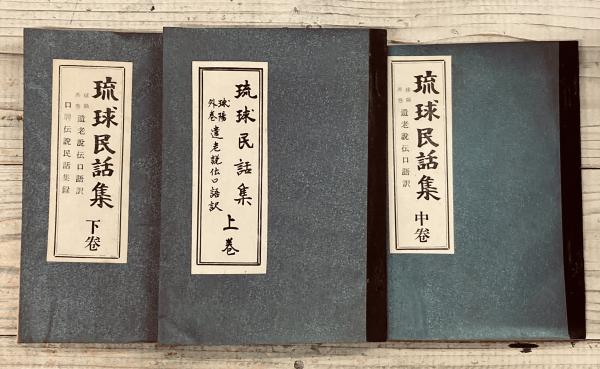 琉球民話集 下卷
球陽
外巻
遺老説伝口語訳
口碑伝説民話集録
琉球民話集 上巻
球陽
外巻
遺老説伝口語訳
琉球民話集 中卷
球陽
外巻
遺老説伝口語訳